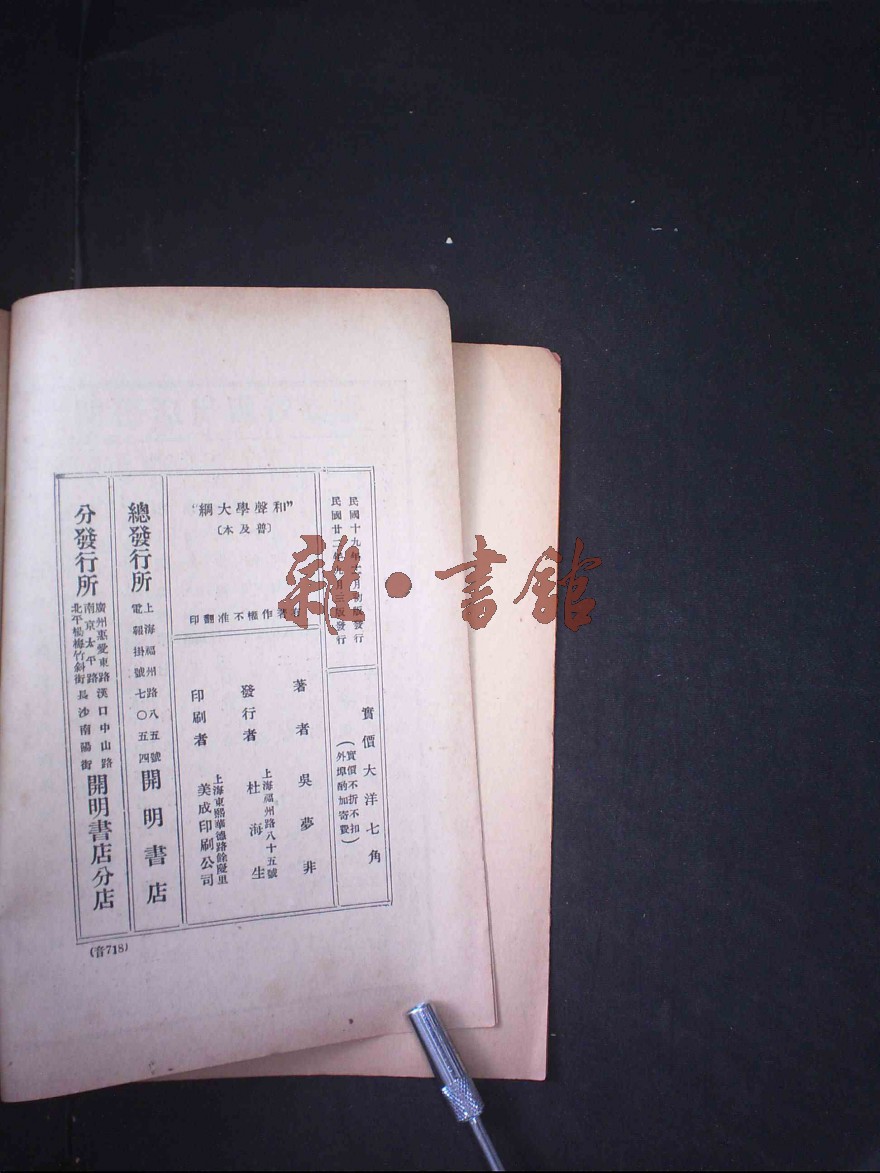 民國十九年 月初版發行
民國廿三年 月三版發行
實價大洋七角
(實價不折不扣
外埠酌加寄費)
“和聲學大綱”
〔普及本〕
著作權不准翻印
著者 吳夢非
發行者 上海福州路八十五號
杜海生
印刷者 上海東熙華德路餘慶里
美成印刷公司
總發行所 上海福州路八五號
電報掛號七〇五四 開明書店
分發行所 廣州惠愛東路 漢口中山路
南京太平路
北平楊梅竹斜街 長沙南陽街 開明書店分店
(音718)
雜·書館